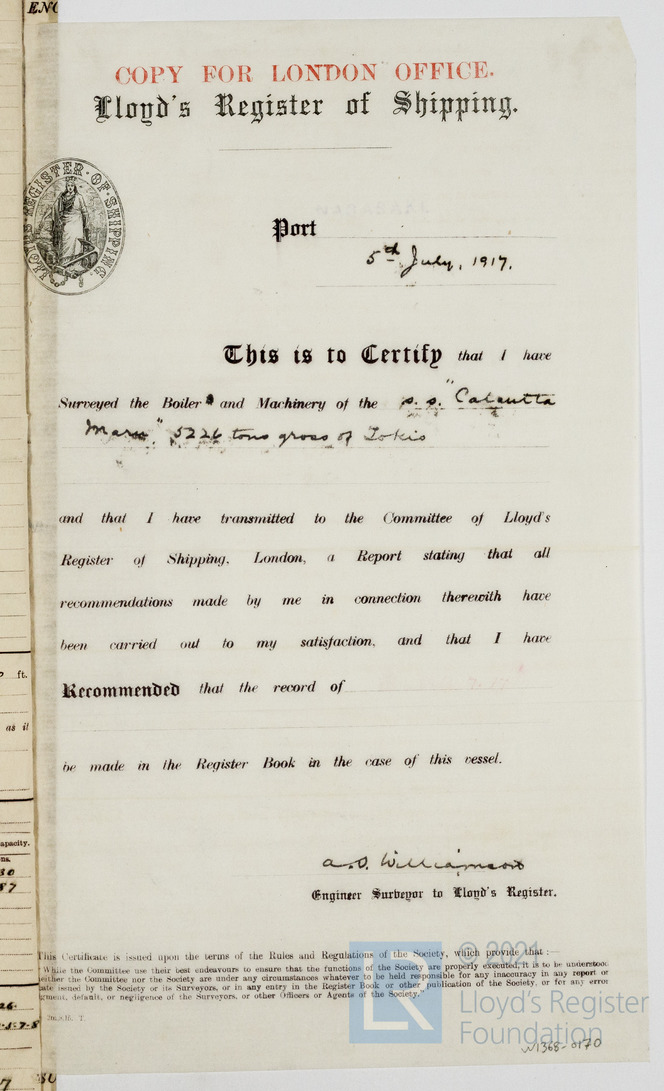 COPY FOR LONDON OFFICE.
Lloyd's Register of Shipping.
LLOYD'S REGISTER OF SHIPPING.
Port
5th July, 1917.
This is to Certify that I have
Surveyed the Boilers and Machinery of the s.s. "Calcutta
Maru," 5226 tons gross of Tokio
and that I have transmitted to the Committee of Lloyd's
Register of Shipping, London, a Report stating that all
recommendations made by me in connection therewith have
been carried out to my satisfaction, and that I have
Recommended that the record of
be made in the Register Book in the case of this vessel.
A. D. Williamson
Engineer Surveyor to Lloyd's Register.
This Certificate is issued upon the terms of the Rules and Regulations of the Society, which provide that :—
"While the Committee use their best endeavours to ensure that the functions of the Society are properly executed, it is to be understood
neither the Committee nor the Society are under any circumstances whatever to be held responsible for any inaccuracy in any report or
cate issued by the Society or its Surveyors, or in any entry in the Register Book or other publication of the Society, or for any error
gment, default, or negligence of the Surveyors, or other Officers or Agents of the Society."
© 2021
Lloyd's Register
Foundation
W1368-0170
ft.
as it
apacity.